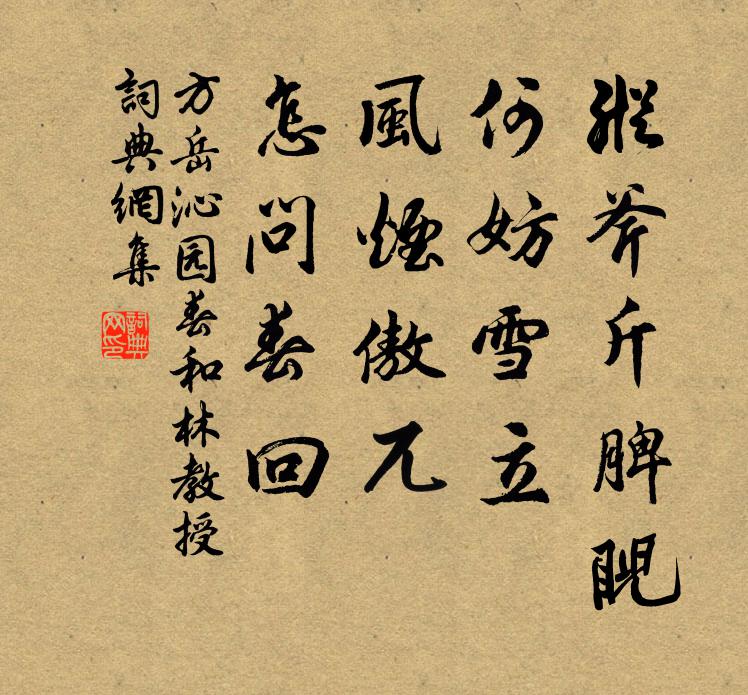 縱斧斤脾睨
何妨雪立
風煙傲兀
怎問春回
方岳沁园春和林教授
詞典網集
詞典网印